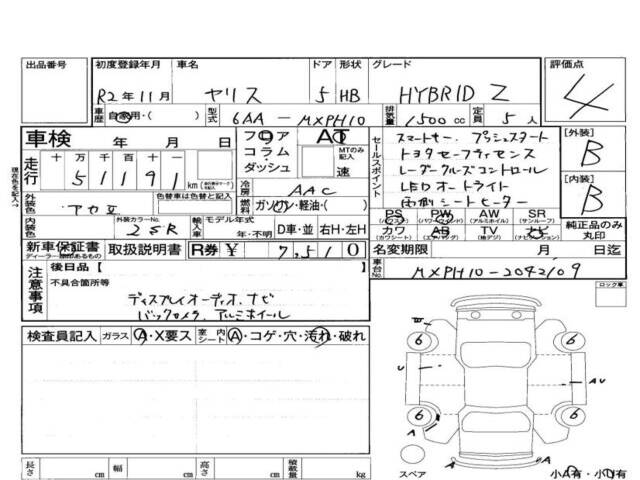 出品番号 初度登録年月 車名 ドア 形状 グレード 評価点
R2年11月 ヤリス 5 HB HYBRID Z 4
車歴 自家用・( ) 型式 6AA-MXPH10 排気量 1500cc 定員 5人
車検 年 月 日 フロア AT
コラム MTのみ記入
ダッシュ 速
走行 十 万 千 百 十 一
51191 km
冷房 AAC
燃料 ガソリン・軽油・( )
外装色 アカ 色替車は色替と記入
内装色 外装カラーNo. 25R 輸入車 モデル年式 年・不明 D車・並 右H・左H
セールスポイント
スマートキー プッシュスタート
トヨタセーフティセンス
レーダークルーズコントロール
LEDオートライト
シートヒーター
[外装] B
[内装] B
PS PW AW SR
(パワステ) (パワーウィンドウ) (アルミホイル) (サンルーフ)
カワ AB TV ナビ
(カワシート) (エアバッグ) (地デジ) (ナビゲーション)
純正品のみ丸印
現在色を記入→
新車保証書 取扱説明書 R券 ¥ 7,510
ディーラー捺印あるもの
名変期限 月 日迄
車台No. MXPH10-2042109
注意事項
後日品【 】
不具合箇所等
ディスプレイオーディオ、ナビ
バックカメラ、アルミホイール
検査員記入 ガラス A・X要ス 室内シート A・コゲ・穴・汚れ・破れ
ロック車
6 6
U AU
6 6
A A
スペア 小A有・小U有
長さ cm 幅 cm 高さ cm 積載量 kg